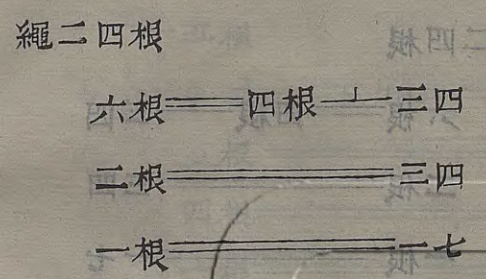 繩二四根
六根＝四根⊥三四
二根＝三四
一根＝一七